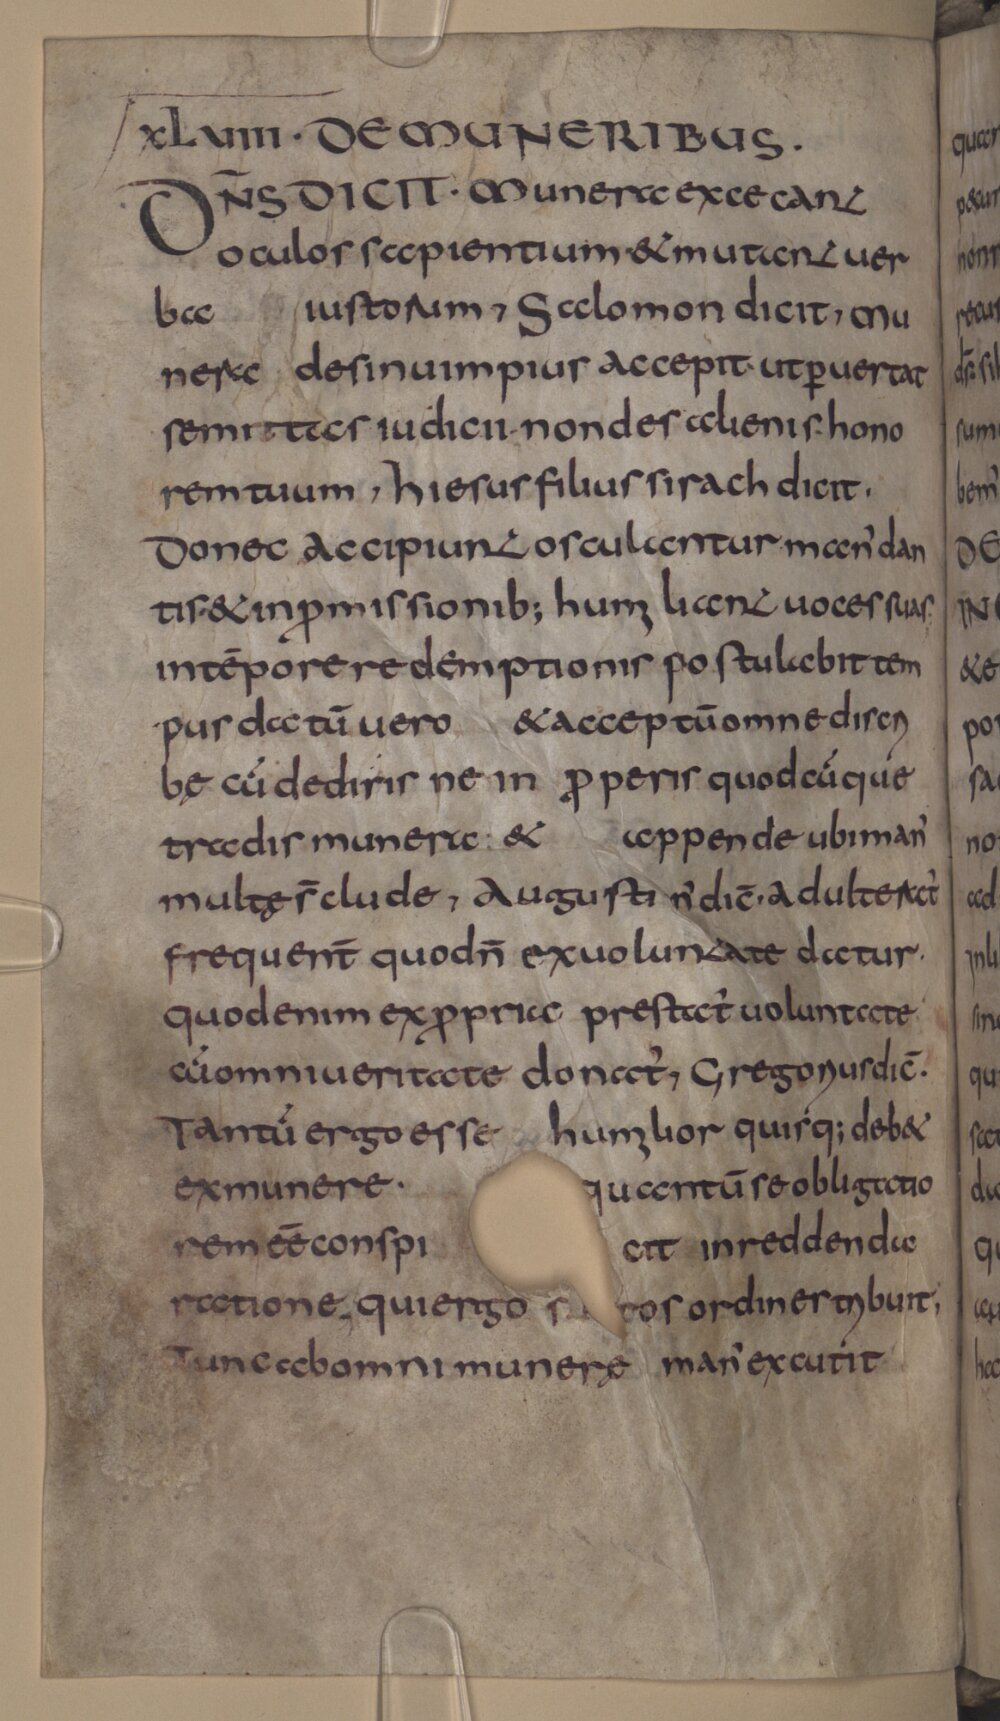 xLVIIII · DE MUNERIBUS.
DN̄S DICIT · Munera excecant
oculos sapientium · & mutant uer
ba iustorum, Salomon dicit, Mu
nera de sinu impius accepit · ut ꝑuertat
semitas iudicii · non des alienis · hono
rem tuum, hiesus filius sirach dicit.
Donec accipiunt osculantur man' dan
tis · & in ꝓmissionib; humiliant uoces suas.
in tēpore redemptionis postulabit tem
pus datū uero & acceptū omne discri
bę cū dederis ne in ꝓperis quodcūque
tradis munera : & appende ubi man'
multę s̄ clude, Augustin' dic̄ · adulterat'
frequent̄ quod n̄ ex uoluntate datur ·
quod enim ex ꝓpria prestat' uoluntate
cū omni ueritate donat', Gregorius dic̄ ·
Tantū ergo esse humilior quisq; deb&
ex munere · quantū se obligatio
rem ēē conspi cit in reddenda
ratione, qui ergo s tos ordines tribuit,
Tunc ab omni munere man' excutit